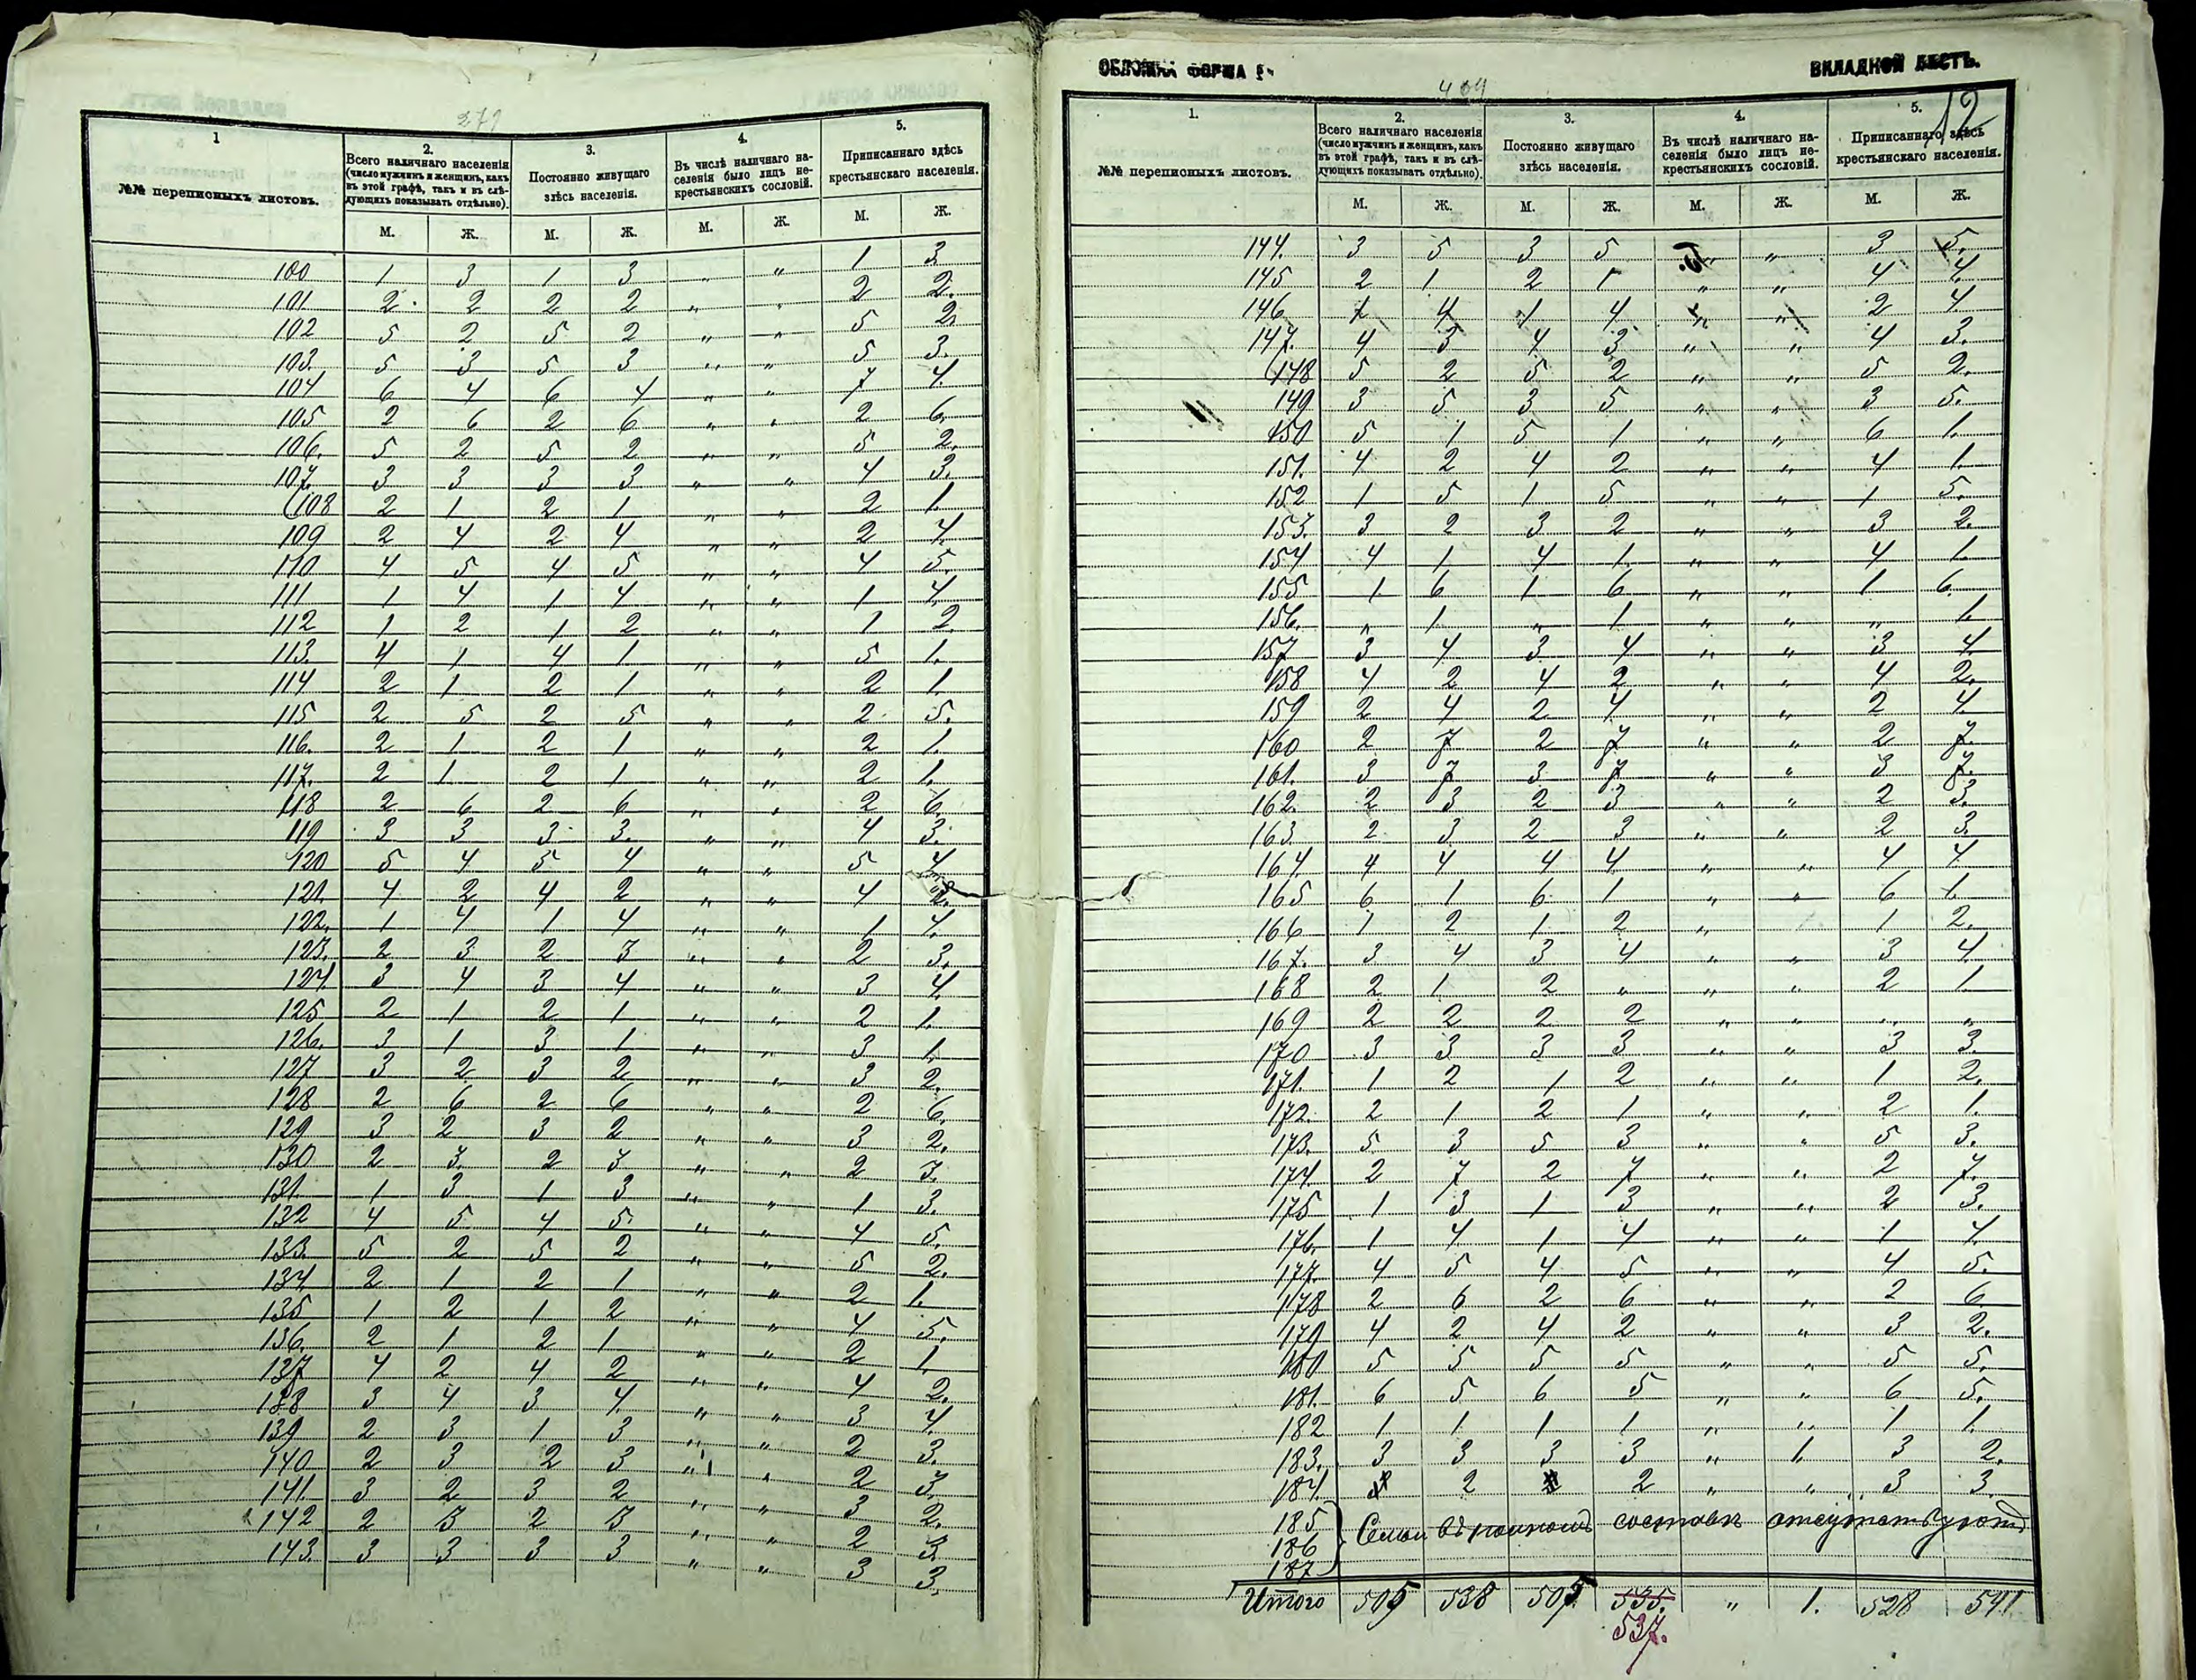 279
1
2.
Всего наличнаго населенія (число мужчинъ и женщинъ, какъ въ этой графѣ, такъ и въ слѣдующихъ показывать отдѣльно).
3.
Постоянно живущаго здѣсь населенія.
4.
Въ числѣ наличнаго населенія было лицъ не-крестьянскихъ сословій.
5.
Приписаннаго здѣсь крестьянскаго населенія.
№№ переписныхъ листовъ.
М. Ж. М. Ж. М. Ж. М. Ж.
100 1 3 1 3 „ „ 1 3
101 2 2 2 2 „ „ 2 2.
102 5 2 5 2 „ „ 5 2.
103. 5 3 5 3 „ „ 5 3.
104 6 4 6 4 „ „ 7 4.
105 2 6 2 6 „ „ 2 6.
106. 5 2 5 2 „ „ 5 2.
107. 3 3 3 3 „ „ 4 3.
108 2 1 2 1 „ „ 2 1.
109 2 4 2 4 „ „ 2 4.
110 4 5 4 5 „ „ 4 5.
111 1 4 1 4 „ „ 1 4.
112 1 2 1 2 „ „ 1 2.
113. 4 1 4 1 „ „ 5 1.
114 2 1 2 1 „ „ 2 1.
115 2 5 2 5 „ „ 2 5.
116. 2 1 2 1 „ „ 2 1.
117. 2 1 2 1 „ „ 2 1.
118 2 6 2 6 „ „ 2 6.
119 3 3 3 3. „ „ 4 3.
120 5 4 5 4 „ „ 5 4
121. 4 2 4 2 „ „ 4 2.
122. 1 4 1 4 „ „ 1 4.
123. 2 3 2 3 „ „ 2 3.
124. 3 4 3 4 „ „ 3 4.
125 2 1 2 1 „ „ 2 1.
126. 3 1 3 1 „ „ 3 1.
127 3 2 3 2 „ „ 3 2.
128 2 6 2 6 „ „ 2 6.
129 3 2 3 2 „ „ 3 2.
130 2 3. 2 3 „ „ 2 3.
131. 1 3 1 3 „ „ 1 3.
132 4 5 4 5 „ „ 4 5.
133. 5 2 5 2 „ „ 5 2.
134. 2 1 2 1 „ „ 2 1.
135 1 2 1 2 „ „ 4 5.
136. 2 1 2 1 „ „ 2 1.
137 4 2 4 2 „ „ 4 2.
138 3 4 3 4. „ „ 3 4.
139 2 3 1 3 „ „ 2 3.
140 2 3 2 3 „ „ 2 3.
141. 3 2 3 2 „ „ 3 2.
142 2 3 2 3 „ „ 2 3.
143. 3 3 3 3 „ „ 3 3.
ОБЛОЖКА ФОРМА
ВКЛАДНОЙ ЛИСТЪ.
409
12
1.
2.
Всего наличнаго населенія (число мужчинъ и женщинъ, какъ въ этой графѣ, такъ и въ слѣдующихъ показывать отдѣльно).
3.
Постоянно живущаго здѣсь населенія.
4.
Въ числѣ наличнаго населенія было лицъ не-крестьянскихъ сословій.
5.
Приписаннаго здѣсь крестьянскаго населенія.
№№ переписныхъ листовъ.
М. Ж. М. Ж. М. Ж. М. Ж.
144. 3 5 3 5 „ „ 3 5.
145 2 1 2 1 „ „ 4 4.
146 1 4 1 4 „ „ 2 4.
147. 4 3 4 3 „ „ 4 3.
148 5 2 5 2 „ „ 5 2.
149 3 5 3 5 „ „ 3 5.
150 5 1 5 1 „ „ 6 1.
151. 4 2 4 2 „ „ 4 1.
152 1 5 1 5 „ „ 1 5.
153. 3 2 3 2 „ „ 3 2.
154 4 1 4 1. „ „ 4 1.
155 1 6 1 6 „ „ 1 6.
156. „ 1 „ 1 „ „ „ 1.
157 3 4 3 4 „ „ 3 4.
158 4 2 4 2 „ „ 4 2.
159 2 4 2 4 „ „ 2 4.
160 2 7 2 7 „ „ 2 7.
161. 3 7 3 7 „ „ 3 7.
162. 2 3 2 3 „ „ 2 3.
163. 2 3 2 3 „ „ 2 3.
164. 4 4 4 4 „ „ 4 4
165 6 1 6 1 „ „ 6 1.
166 1 2 1 2 „ 1 2.
167. 3 4 3 4 „ „ 3 4
168 2 1 2 „ „ „ 2 1
169 2 2 2 2 „ „ „ „
170 3 3 3 3 „ „ 3 3.
171. 1 2 1 2 „ „ 1 2.
172. 2 1 2 1 „ „ 2 1.
173. 5 3 5 3 „ „ 5 3.
174. 2 7 2 7 „ „ 2 7.
175 1 3 1 3 „ „ 2 3.
176. 1 4 1 4 „ „ 1 4
177. 4 5 4 5 „ „ 4 5.
178 2 6 2 6 „ „ 2 6
179 4 2 4 2 „ „ 3 2.
180 5 5 5 5 „ „ 5 5.
181. 6 5 6 5 „ „ 6 5.
182 1 1 1 1 „ „ 1 1.
183. 3 3 3 3 „ 1. 3 2.
184. 2 2 „ „ 3 3.
185
186
187
Семьи въ полномъ составѣ отсутствуютъ
Итого 505 538 505. 535. „ 1. 528 541
537.